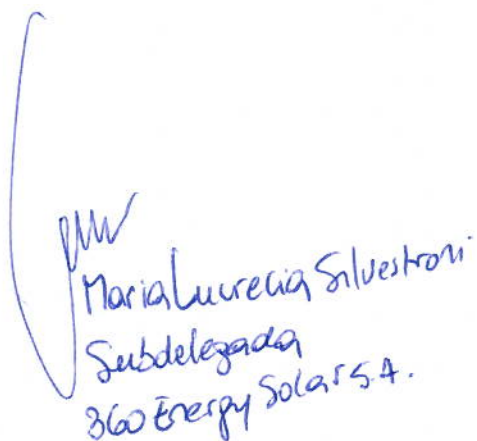 Maria Lucrecia Silvestroni
Subdelegada
360 Energy Solar S.A.